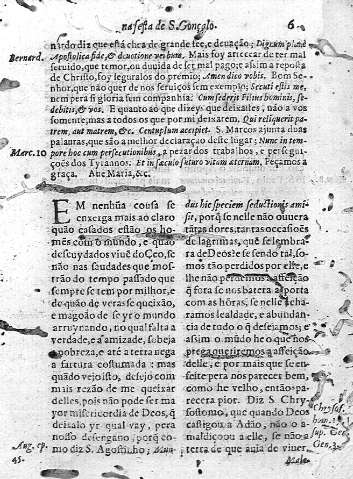 na festa de S. Gonçalo. 6
nardo diz que está chea de grande fee, e deuação; Dignum planè
Bernard. Apostolica fide, & deuotione verbum. Mais foy arrecear de ter mal
seruido, que temor, ou duuida de ser mal pago; assim a reposta
de Christo, foy seguralos do premio; Amen dico vobis. Bom Se-
nhor, que não quer de nos seruiços sem exemplo; Secuti estis me,
nem pera si gloria sem companhia. Cum sederit Filius hominis, se-
debitis, & vos. E quanto ao que dizeys que deixastes, não a vos
somente, mas a todos os que por mi deixarem. Qui reliquerit pa-
trem, aut matrem, &c. Centuplum accipiet. S. Marcos ajunta duas
palauras, que são a melhor declaração deste lugar; Nunc in tem-
Marc. 10 pore hoc cum persecutionibus, a pezar dos trabalhos, e persegui-
ções dos Tyrannos. Et in sæculo futuro vitam æternam. Peçamos a
graça. Aue Maria, &c.
EM nenhũa cousa se
enxerga mais ao claro
quão casados estão os ho-
mẽs com o mundo, e quão
descuydados viuẽ do Ceo, se
não nas saudades que mos-
trão do tempo passado que
sempre se tem por milhor, e
de quão de veras se queixão,
e magoão de se yr o mundo
arruynando, no qual falta a
verdade, e a amizade, sobeja
a pobreza, e até a terra nega
a fartura costumada: mas
quãdo vejo isto, desejo com
mais rezão de me queixar
delles, pois não pode ser ma
yor misericordia de Deos, q̃
deixalo yr qual vay, pera
nosso desengano, porq̃ co-
Aug. ep. mo diz S. Agostinho; Mun-
45.
dus hic speciem seductionis ami-
sit, porq̃ se nelle não ouuera
tãtas dores, tantas occasiões
de lagrimas, quẽ se lembra-
ra de Deos? e se sendo tal, so-
mos tão perdidos por elle, e
lhe não perdemos a affeição
q̃ fora se nos batera a porta
com as hõras, se nelle acha-
ramos lealdade, e abundan-
cia de tudo o q̃ desejamos; e
assim o mũdo he o que nos
prega queiremos a affeição
delle; e por mais que se en-
feite pera nos parecer bem,
como he velho, então pa-
recera pior. Diz S. Chry-
Chrysost. sostomo, que quando Deos
hom. castigou a Adão, não o a-
sup. Gen. maldiçoou a elle, se não a
Gen. 3. terra de que auia de viuer,